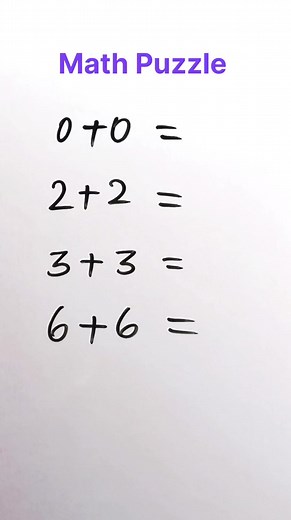 Math Puzzle
0+0 =
2+2 =
3+3 =
6+6 =